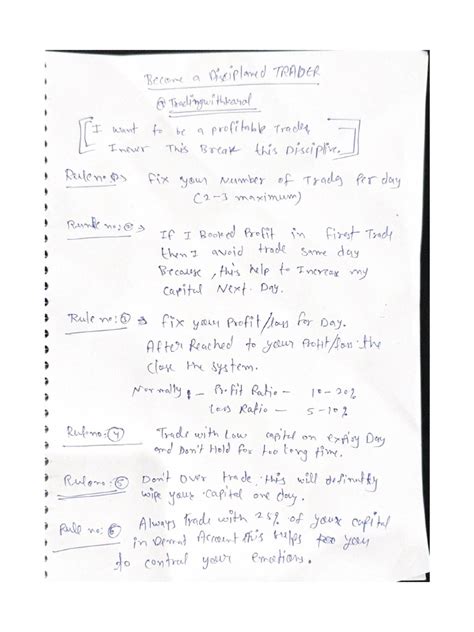 Become a Disciplaned TRADER
@Tradingwithkaral
[I want to be a profitable Trader
I never This Break this Discipline.]
Rule no: ① → fix your Number of Trades Per day
(2-3 maximum)
Rule no: ② → If I Booked Profit in first Trade
then I avoid trade same day
Because, this help to Increase my
Capital Next Day.
Rule no: ③ → fix your Profit/loss for Day.
After Reached to your Profit/loss the
Close the System.
Normally :- Profit Ratio - 10-20%
Loss Ratio - 5-10%
Rule no: ④ Trade with Low capital on expiry Day
and Don't Hold for too long time.
Rule no: ⑤ Don't Over trade this will definitly
wipe your capital one day.
Rule no: ⑥ Always trade with 25% of your capital
in Demat Account this helps for you
to control your emotions.